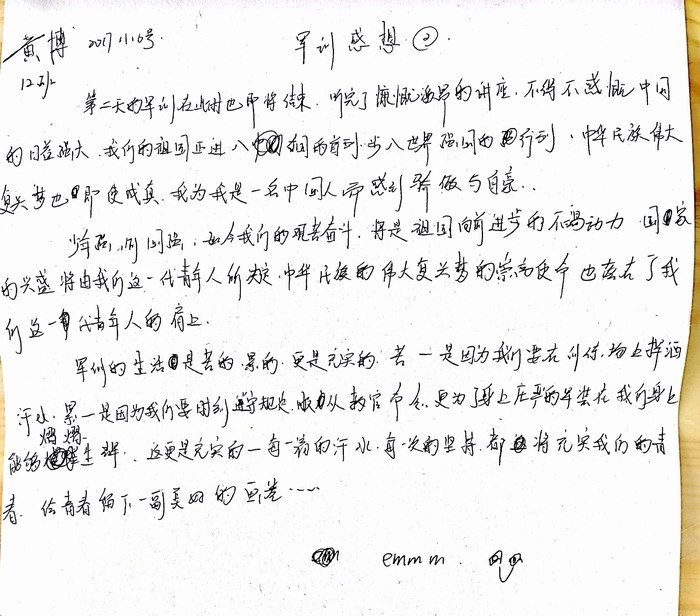 黄博 2017.11.10号. 军训感想②.
12班
第二天的军训在此时也即将结束. 听完了慷慨激昂的讲座. 不得不感慨中国
的日益强大. 我们的祖国正进入 国的前列. 步入世界强国的行列. 中华民族伟大
复兴梦也即使成真. 我为我是一名中国人而感到骄傲与自豪..
少年强, 则国强, 如今我们的艰苦奋斗. 将是祖国向前进步的不竭动力 国家
的兴盛将由我们这一代青年人所决定. 中华民族的伟大复兴梦的崇高使命也落在了我
们这一代青年人的肩上.
军训的生活是苦的. 累的. 更是充实的. 苦一是因为我们要在训练场上挥洒
汗水. 累一是因为我们要时刻遵守规定. 服从教官命令. 更为了身上庄严的军装在我们身上
能够熠熠生辉. 这更是充实的一每一滴的汗水. 每一次的坚持. 都将充实我们的青
春. 给青春留下一副美好的画卷……
emmm.